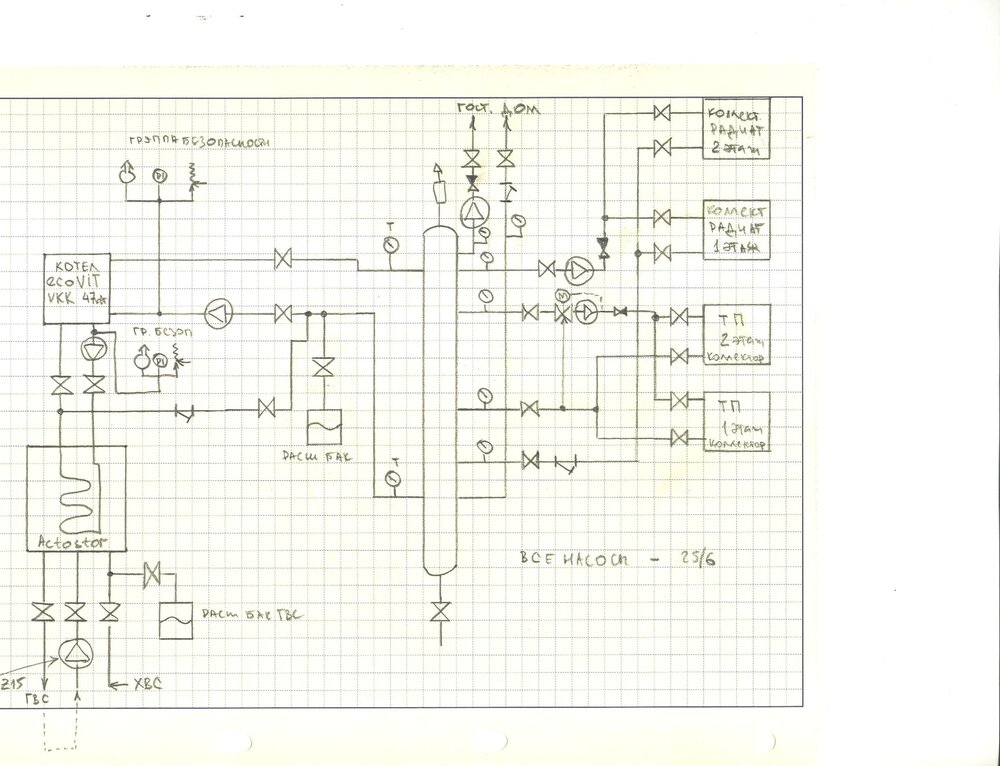 ГОСТ. ДОМ
КОЛЛЕКТ
РАДИАТ
2 ЭТАЖ
ГРУППА БЕЗОПАСНОСТИ
PI
Т
КОЛЛЕКТ
РАДИАТ
1 ЭТАЖ
КОТЕЛ
ecoVIT
VKK 47
М
ГР. БЕЗОП
PI
ТП
2 этаж
коллектор
ТП
1 этаж
коллектор
РАСШ БАК
Т
Actostor
ВСЕ НАСОСЫ - 25/6
РАСШ БАК ГВС
Z15
ГВС
ХВС